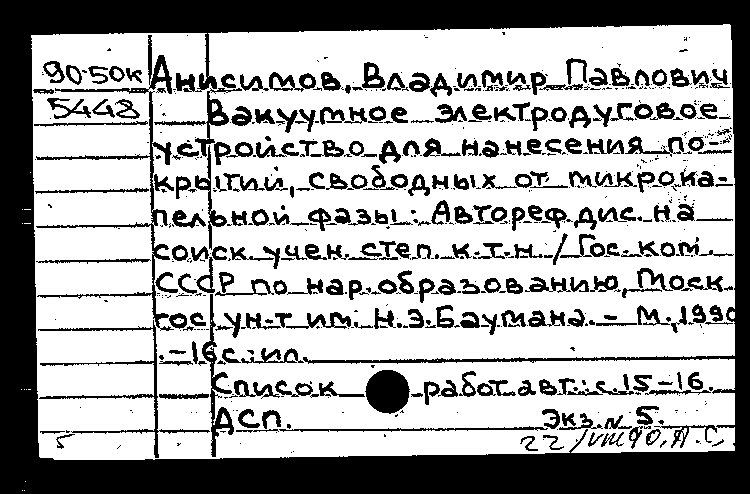 90-50к Анисимов, Владимир Павлович
5448 Вакуумное электродуговое
устройство для нанесения по-
крытий, свободных от микрока-
пельной фазы: Автореф.дис. на
соиск. учен. степ. к.т.н. / Гос. ком.
СССР по нар. образованию, Моск.
гос. ун-т им. Н.Э.Баумана. - М., 1990
. - 16 с.: ил.
Список работ авт.: с. 15-16.
ДСП. Экз. N 5.
5 22/VIII 90, А.С.